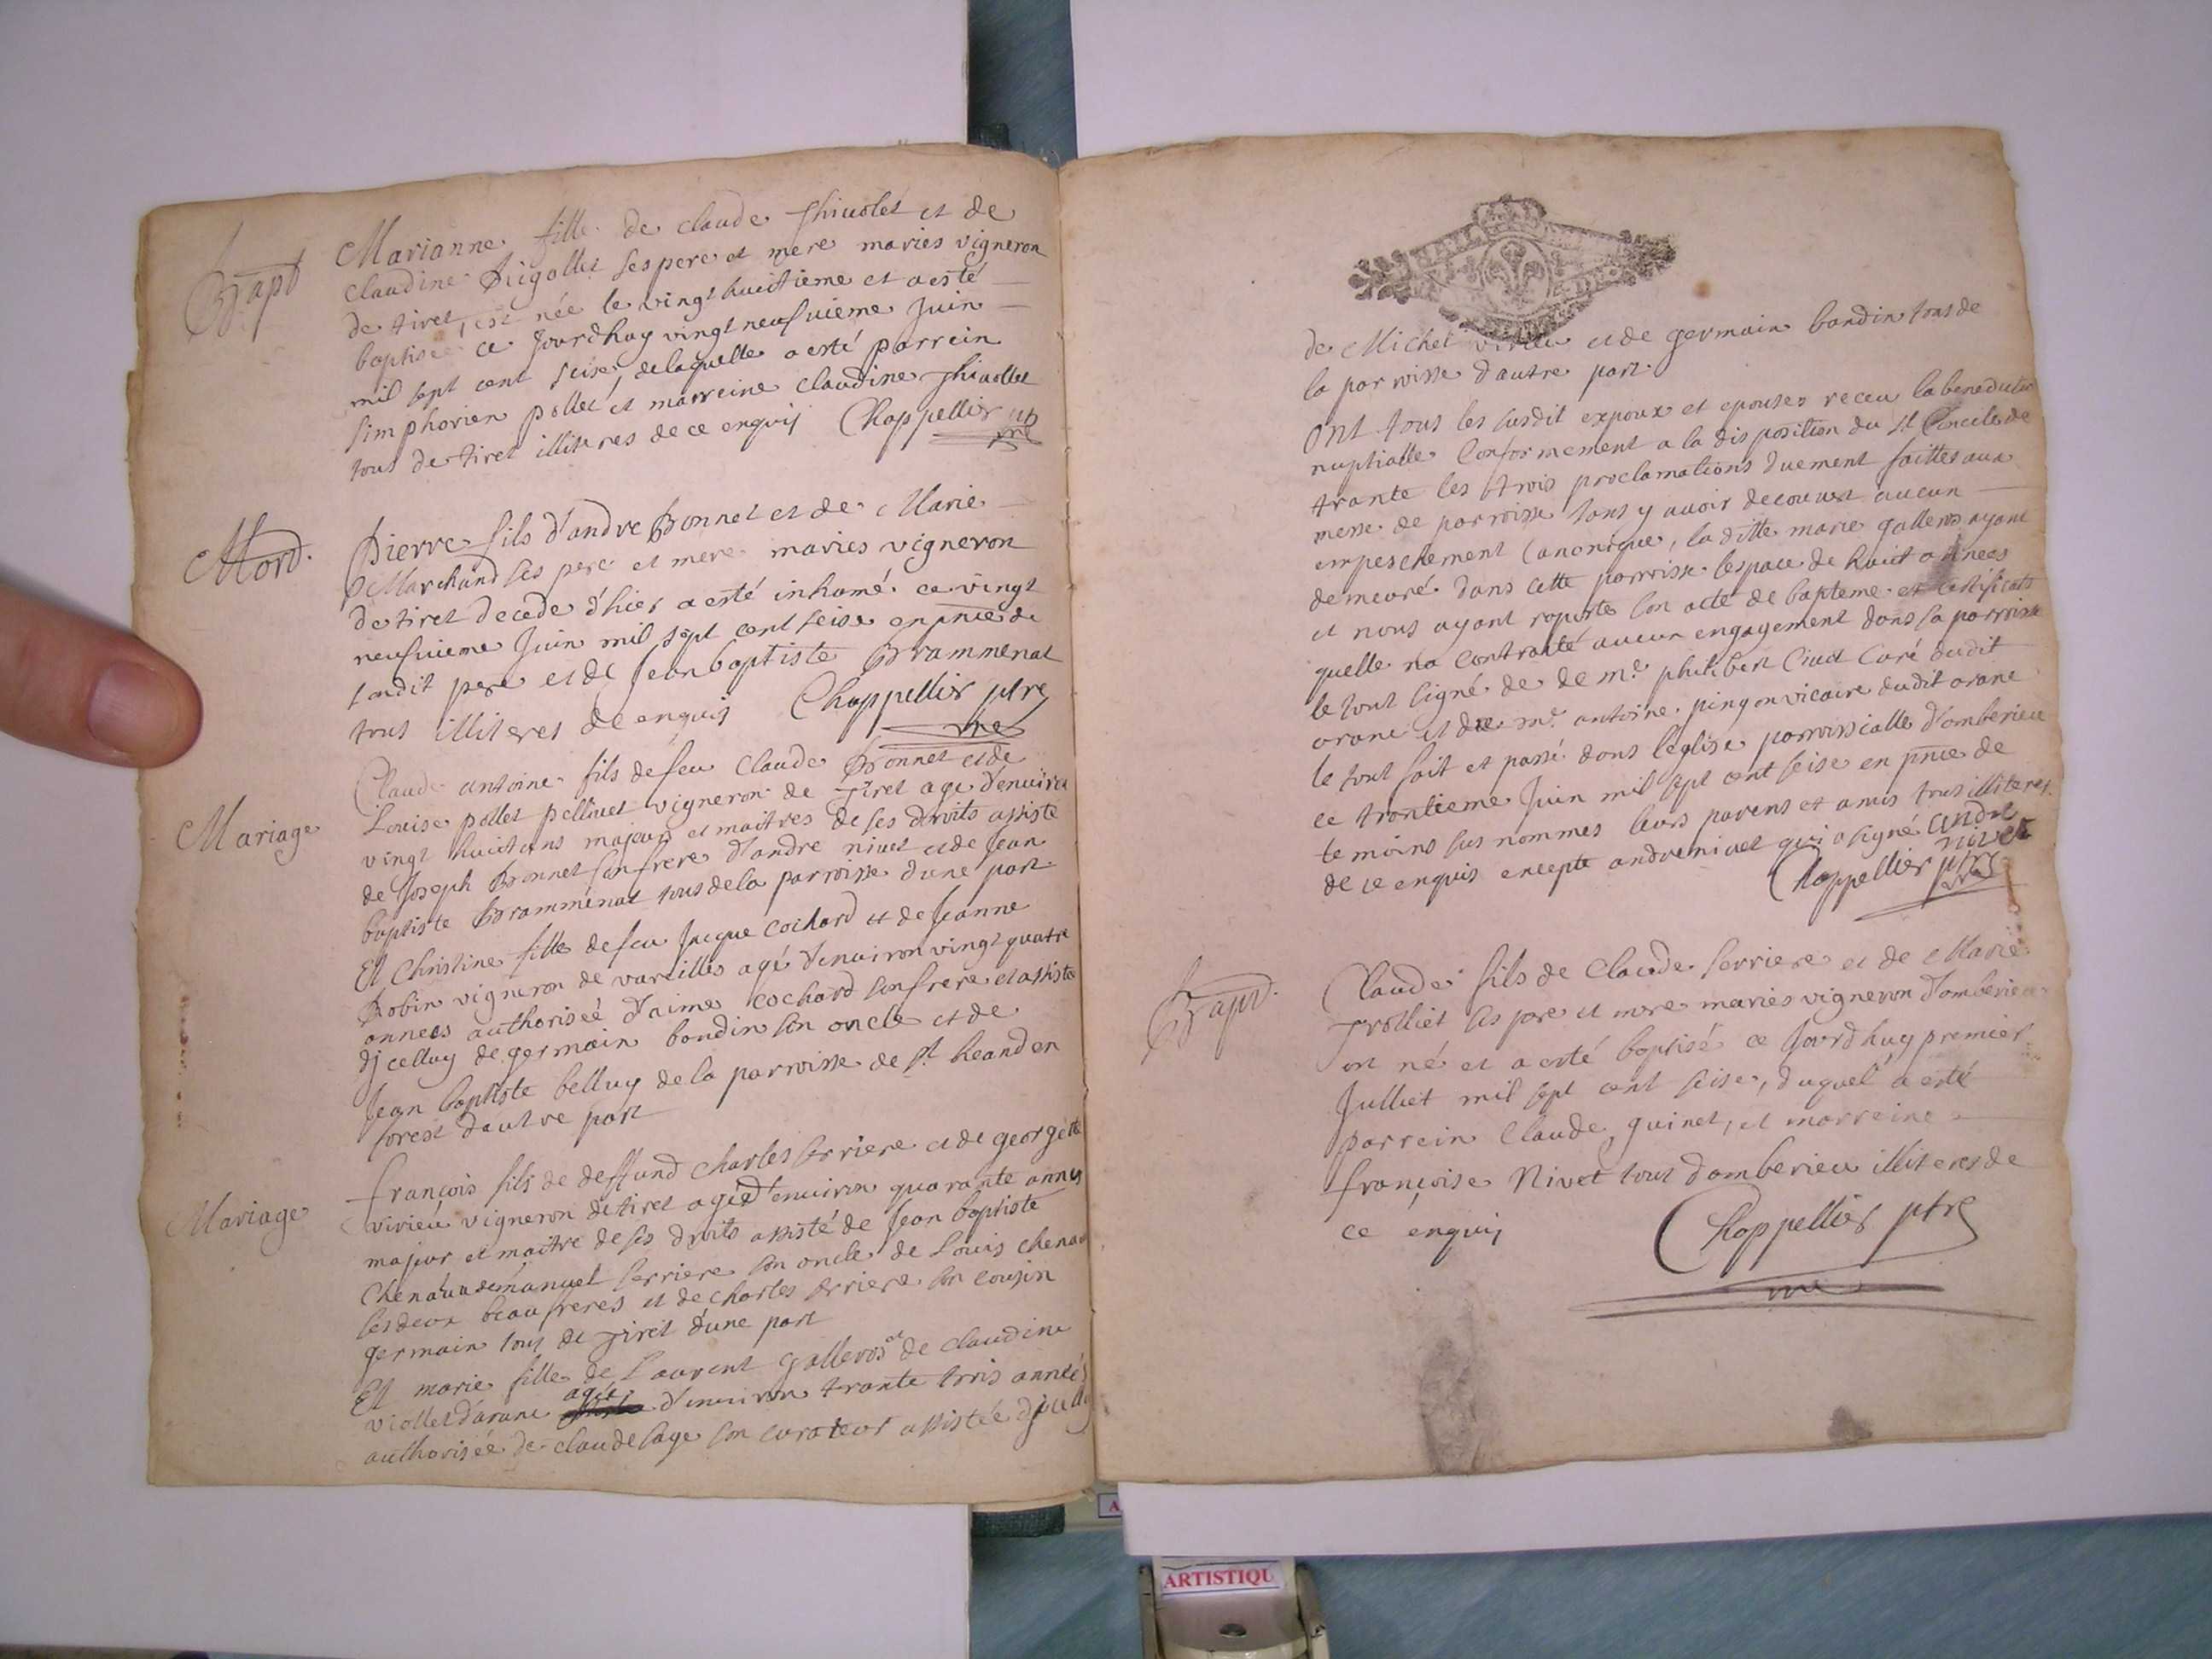 Bapt
Marianne fille de claude Thivolet et de
claudine Rigollet ses pere et mere maries vigneron
de tiret, est née le vingt huitieme et a esté
baptisée ce Jourdhuy vingt neufuieme Juin
mil sept cent seise, de laquelle a esté parrein
simphorien pollet et marreine claudine Thivollet
tous de tiret illiteres de ce enquis Chappellier ptre
vre
Mort.
Pierre fils d'andre Bonnet et de Marie
Marchand ses pere et mere maries vigneron
de tiret decede d'hier a esté inhumé ce vingt
neufuieme Juin mil sept cent seise en pnce de
sondit pere et de Jean baptiste Brammenat
tous illiteres de enquis Chappellier ptre
vre
Mariage
Claude antoine fils de feu Claude Bonnet et de
Louise pollet pellinet vigneron de Tiret age d'enuiron
vingt huict ans majeurs et maitres de ses droits assiste
de Joseph Bonnet son frere d'andre nivet et de Jean
baptiste Brammenat tous de la parroisse d'une part
Et Christine fille de feu Jacque Cochard et de Jeanne
Robin vigneron de vareilles agé d'enuiron vingt quatre
annees authorisée d'aime Cochard son frere et assistée
djcelluy de germain bondin son oncle et de
Jean baptiste belluy de la parroisse de st heand en
forest d'autre part
Mariage
françois fils de deffund charles serriere et de georgette
virieu vigneron de tiret agé d'enuiron quarante annes
majeur et maitre de ses droits assisté de Jean baptiste
Chenaud emanuel serriere son oncle de Louis chenau
ses deux beaufreres et de charles serriere son cousin
germain tous de Tiret d'une part
Et marie fille de Laurent gallevos et de claudine
viollet d'arane agée d'enuiron trante trois années
authorisée de claude sage son curateur assistée djcelluy
de Michel virieu et de germain bandin tous de
la parroisse d'autre part.
ont tous les susdit expoux et epouses receu la benediction
nuptialle Conformement a la disposition du st Concile de
trante les trois proclamations duement faittes aux
messe de parroisse sans y auoir decouuert aucun
empeschement Canonique, la ditte marie gallevos ayant
demeuré dans cette parroisse l'espace de huit annees
et nous ayant raporte son acte de bapteme et certificats
quelle na contracté aucun engagement dans sa parroisse
le tout signé de de mr. philibert Ciuet Curé dudit
arane et de mr. antoine pingon vicaire dudit arane
le tout fait et passé dans leglise parroissialle d'omberieu
ce trantieme Juin mil sept cent seise en pnce de
temoins sus nommes leurs parens et amis tous illiteres
de ce enquis excepte andre nivet qui a signé andre
nivet
Chappellier ptre
vre
Bapt.
Claude fils de Claude serriere et de Marie
Trolliet ses pere et mere maries vigneron d'omberieu
est né et a esté baptisé ce Jourd'huy premier
Julliet mil sept cent seise, duquel a esté
parrein Claude guinet, et marreine
françoise Nivet tous d'omberieu illiteres de
ce enquis Chappellier ptre
vre
ARTISTIQU